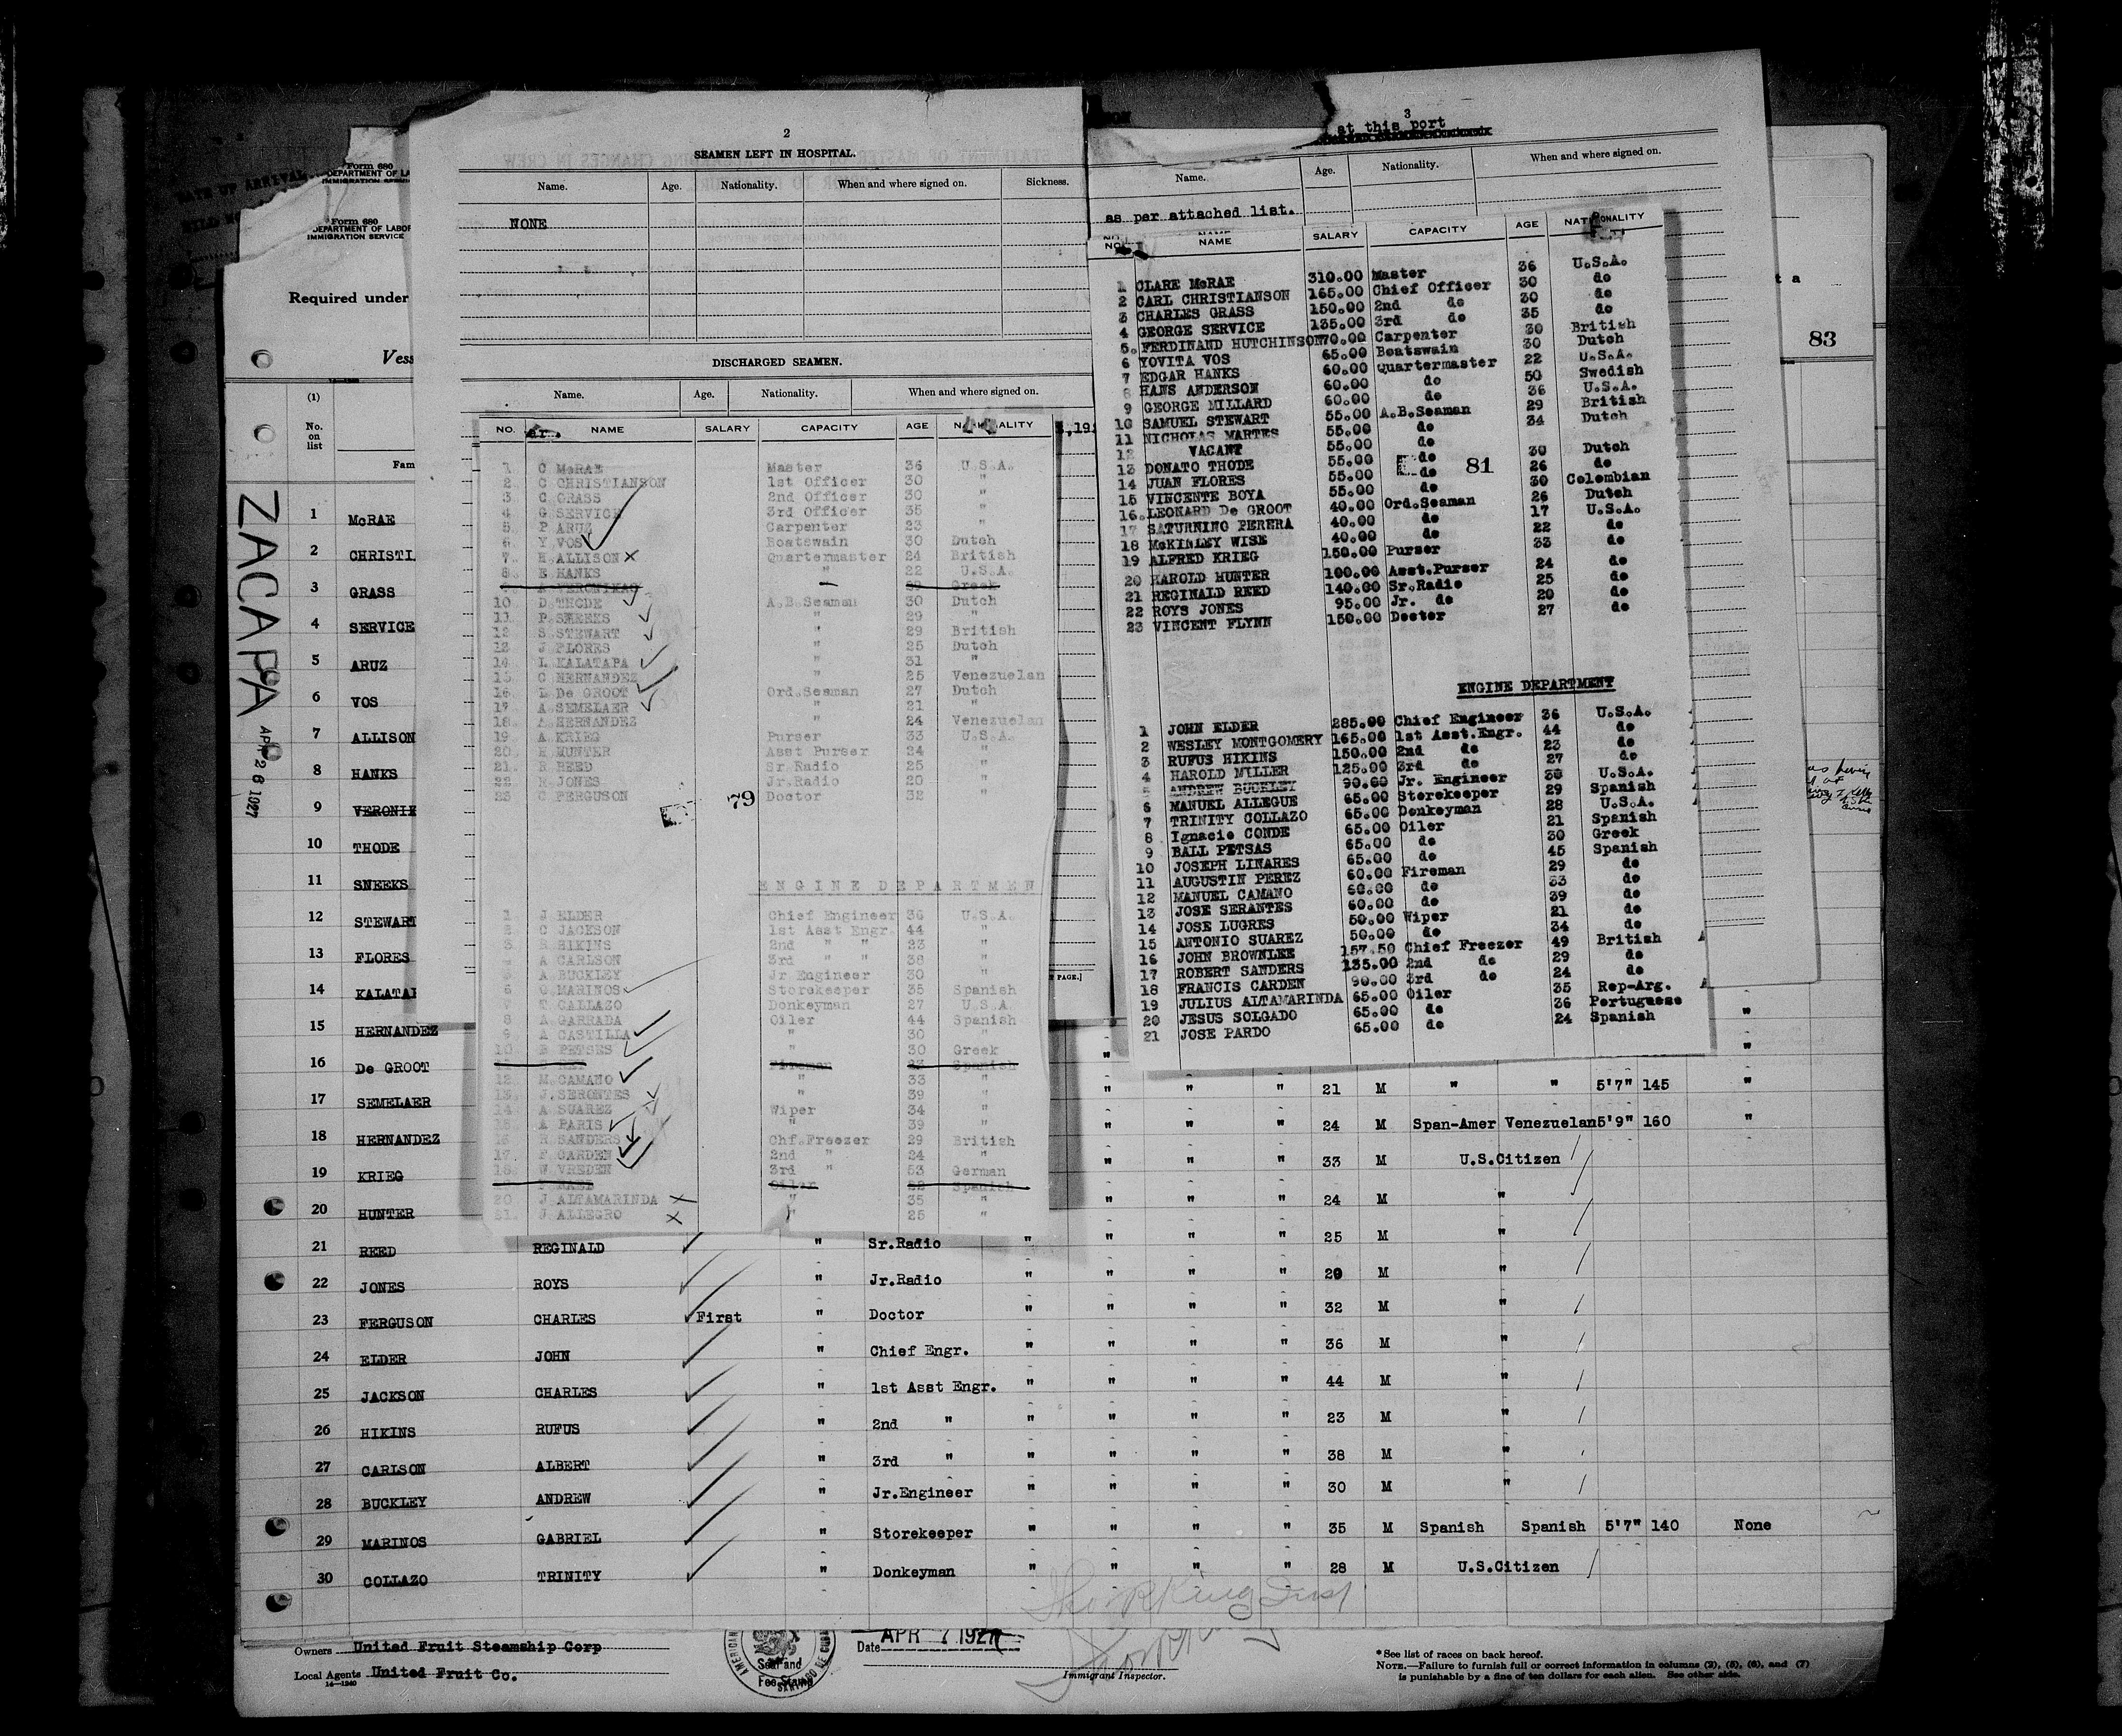 Form 680
DEPARTMENT OF LA
IMMIGRATION SERVI
Form 680
DEPARTMENT OF LABOR
IMMIGRATION SERVICE
Required under
Vess
(1)
No.
on
list
Fam
ZACAPA
APR 26 1927
1 McRAE
2 CHRISTI
3 GRASS
4 SERVICE
5 ARUZ
6 VOS
7 ALLISON
8 HANKS
9 VERONIK
10 THODE
11 SNEEKS
12 STEWART
13 FLORES
14 KALATAP
15 HERNANDEZ
16 De GROOT
17 SEMELAER
18 HERNANDEZ
19 KRIEG
20 HUNTER
2
SEAMEN LEFT IN HOSPITAL.
Name. Age. Nationality. When and where signed on. Sickness.
NONE
DISCHARGED SEAMEN.
Name. Age. Nationality. When and where signed on.
NO. NAME SALARY CAPACITY AGE NATIONALITY
1. C McRAE Master 36 U.S.A.
2. C CHRISTIANSON 1st Officer 30 "
3 C GRASS 2nd Officer 30 "
4 G SERVICE 3rd Officer 35 "
5. P ARUZ Carpenter 23 "
6. Y VOS Boatswain 30 Dutch
7. H ALLISON X Quartermaster 24 British
8. E HANKS " 22 U.S.A.
9. A VERONIKAS Greek
10. D THODE A.B.Seaman 30 Dutch
11. P SNEEKS " 29 "
12 S STEWART " 29 British
13 J FLORES " 25 Dutch
14. L KALATAPA " 31 "
15. C HERNANDEZ " 25 Venezuelan
16. L De GROOT Ord.Seaman 27 Dutch
17. A SEMELAER " 21 "
18. A HERNANDEZ " 24 Venezuelan
19. A KRIEG Purser 33 U.S.A.
20. H HUNTER Asst Purser 24 "
21. R REED Sr.Radio 25 "
22 R JONES Jr.Radio 20 "
23 C FERGUSON Doctor 32 "
79
ENGINE DEPARTMEN
1 J ELDER Chief Engineer 36 U.S.A.
2. C JACKSON 1st Asst Engr. 44 "
3. R HIKINS 2nd " " 23 "
4 A CARLSON 3rd " " 38 "
5 A BUCKLEY Jr Engineer 30 "
6 G MARINOS Storekeeper 35 Spanish
7 T CALLAZO Donkeyman 27 U.S.A
8 A GARRADA Oiler 44 Spanish
9 A CASTILLA " 30 "
10. B PETSES " 30 Greek
Fireman 23 Spanish
12. M CAMANO " 33 "
13. J.SERONTES " 39 "
14. A SUAREZ Wiper 34 "
15. A PARIS " 39 "
16 R SANDERS Chf.Freezer 29 British
17. F CARDEN 2nd " 24 "
18. W VREDEN 3rd " 53 German
Oiler 22 Spanish
20. J ALTAMARINDA X " 35 "
21. J ALLEGRO X " 25 "
3
at this port
Name. Age. Nationality. When and where signed on.
as per attached list.
NO. NAME SALARY CAPACITY AGE NATIONALITY
1 CLARE McRAE 310.00 Master 36 U.S.A.
2 CARL CHRISTIANSON 165.00 Chief Officer 30 do
3 CHARLES GRASS 150.00 2nd do 30 do
4 GEORGE SERVICE 135.00 3rd do 35 do
5. FERDINAND HUTCHINSON 70.00 Carpenter 30 British
6 YOVITA VOS 65.00 Boatswain 30 Dutch
7 EDGAR HANKS 60.00 Quartermaster 22 U.S.A.
8 HANS ANDERSON 60.00 do 50 Swedish
9 GEORGE MILLARD 60.00 do 36 U.S.A.
10 SAMUEL STEWART 55.00 A.B.Seaman 29 British
11 NICHOLAS MARTES 55.00 do 34 Dutch
12 VACANT 55.00 do
13 DONATO THODE 55.00 do 30 Dutch
14 JUAN FLORES 55.00 do 26 do
15 VINCENTE BOYA 55.00 do 30 Colombian
16. LEONARD De GROOT 40.00 Ord.Seaman 26 Dutch
17 SATURNINO PERERA 40.00 do 17 U.S.A.
18 McKINLEY WISE 40.00 do 22 do
19 ALFRED KRIEG 150.00 Purser 33 do
20 HAROLD HUNTER 100.00 Asst.Purser 24 do
21 REGINALD REED 140.00 Sr.Radio 25 do
22 ROYS JONES 95.00 Jr. do 20 do
23 VINCENT FLYNN 150.00 Doctor 27 do
81
ENGINE DEPARTMENT
1 JOHN ELDER 285.00 Chief Engineer 36 U.S.A.
2 WESLEY MONTGOMERY 165.00 1st Asst.Engr. 44 do
3 RUFUS HIKINS 150.00 2nd do 23 do
4 HAROLD MILLER 125.00 3rd do 27 do
5 ANDREW BUCKLEY 90.00 Jr. Engineer 30 U.S.A.
6 MANUEL ALLEGUE 65.00 Storekeeper 29 Spanish
7 TRINITY COLLAZO 65.00 Donkeyman 28 U.S.A.
8 Ignacio CONDE 65.00 Oiler 21 Spanish
9 BALL PETSAS 65.00 do 30 Greek
10 JOSEPH LINARES 65.00 do 45 Spanish
11 AUGUSTIN PEREZ 60.00 Fireman 29 do
12 MANUEL CAMANO 60.00 do 33 do
13 JOSE SERANTES 60.00 do 39 do
14 JOSE LUGRES 50.00 Wiper 21 do
15 ANTONIO SUAREZ 50.00 do 34 do
16 JOHN BROWNLEE 157.50 Chief Freezer 49 British
17 ROBERT SANDERS 135.00 2nd do 29 do
18 FRANCIS CARDEN 90.00 3rd do 24 do
19 JULIUS ALTAMARINDA 65.00 Oiler 35 Rep-Arg.
20 JESUS SOLGADO 65.00 do 36 Portuguese
21 JOSE PARDO 65.00 do 24 Spanish
PAGE.]
83
" " " 21 M " " 5'7" 145 "
" " " 24 M Span-Amer Venezuelan 5'9" 160 "
" " " 33 M U.S.Citizen
" " " 24 M "
21 REED REGINALD " Sr.Radio " " " " 25 M "
22 JONES ROYS " Jr.Radio " " " " 20 M "
23 FERGUSON CHARLES First " Doctor " " " " 32 M "
24 ELDER JOHN " Chief Engr. " " " " 36 M "
25 JACKSON CHARLES " 1st Asst Engr. " " " " 44 M "
26 HIKINS RUFUS " 2nd " " " " " 23 M "
27 CARLSON ALBERT " 3rd " " " " " 38 M "
28 BUCKLEY ANDREW " Jr.Engineer " " " " 30 M "
29 MARINOS GABRIEL " Storekeeper " " " " 35 M Spanish Spanish 5'7" 140 None
30 COLLAZO TRINITY " Donkeyman " " " " 28 M U.S.Citizen
Owners United Fruit Steamship Corp
Local Agents United Fruit Co.
14—1240
AMERICAN
Seal and
Fee Stamp
SANTIAGO DE CUBA
Date APR 7 1927
Immigrant Inspector.
*See list of races on back hereof.
NOTE.—Failure to furnish full or correct information in columns (2), (5), (6), and (7)
is punishable by a fine of ten dollars for each alien. See other side.